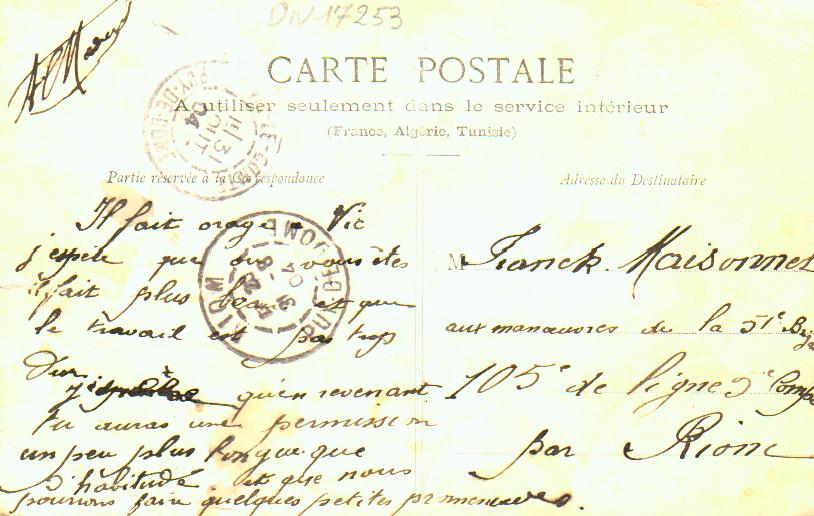 DN 17253
CARTE POSTALE
A utiliser seulement dans le service intérieur
(France, Algérie, Tunisie)
Partie réservée à la Correspondance
Adresse du Destinataire
Il fait orage a Vic
j'espère que ou vous êtes
il fait plus beau et que
le travail est pas trop
dur
qu'en revenant
tu auras une permission
un peu plus longue que
d'habitude et que nous
pourrons faire quelques petites promenades.
M Franck Maisonnet
aux manœuvres de la 51e Brig
105e de ligne 5e Comp
par Riom
RIOM
PUY-DE-DOME
PUY-DE-DOME
31
AOUT
04